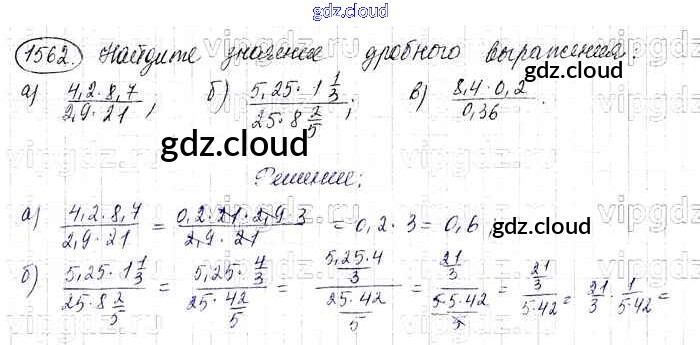 gdz.cloud
1562. Найдите значение дробного выражения:
а) (4,2·8,7)/(2,9·21); б) (5,25·1 1/3)/(25·8 2/5); в) (8,4·0,2)/0,36.
gdz.cloud
gdz.cloud
Решение:
а) (4,2·8,7)/(2,9·21) = (0,2·21·2,9·3)/(2,9·21) = 0,2·3 = 0,6
gdz.cloud
б) (5,25·1 1/3)/(25·8 2/5) = (5,25·4/3)/(25·42/5) = ((5,25·4)/3)/((25·42)/5) = (21/3)/((5·5·42)/5) = (21/3)/(5·42) = 21/3 · 1/(5·42) =